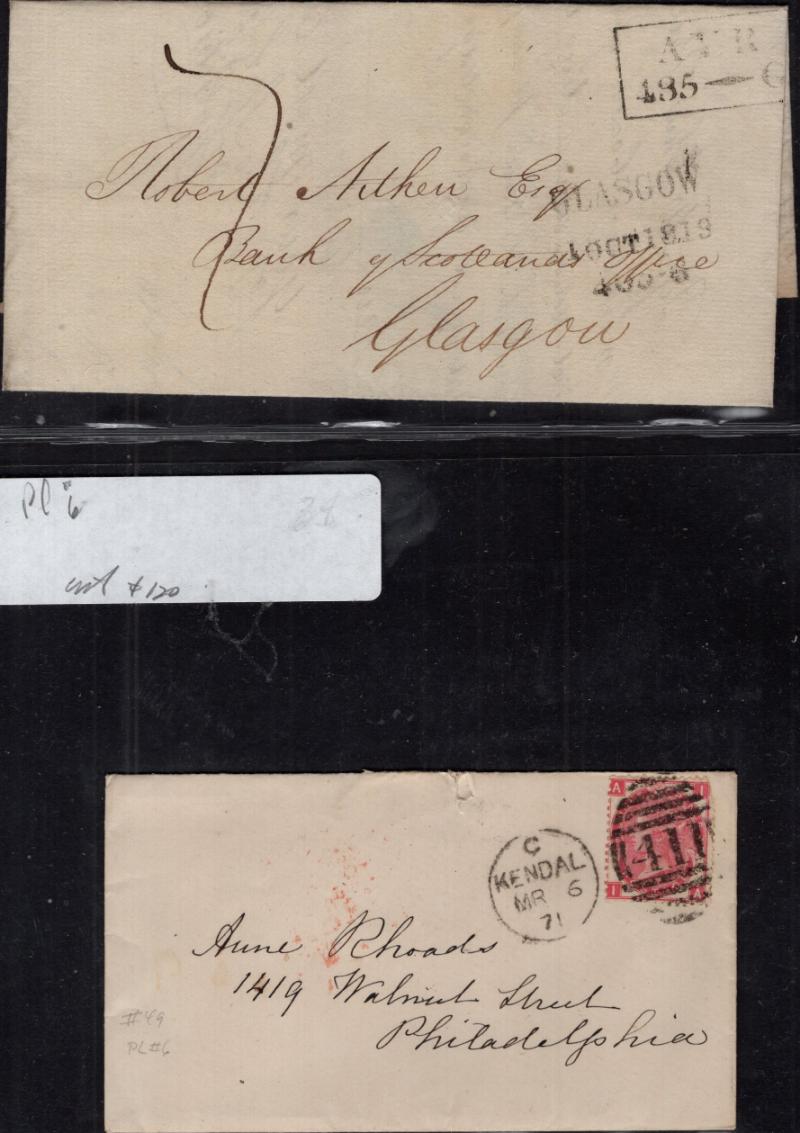 AYR
485 — C
7
Robert Aitken Esqr
GLASGOW
1 OCT 1819
Bank of Scotlands office
405-G
Glasgow
Pl # 6
$120
C
KENDAL
MR 6
71
A I
411
I A
Anne Rhoads
1419 Walnut Street
Philadelphia
#49
PL#6